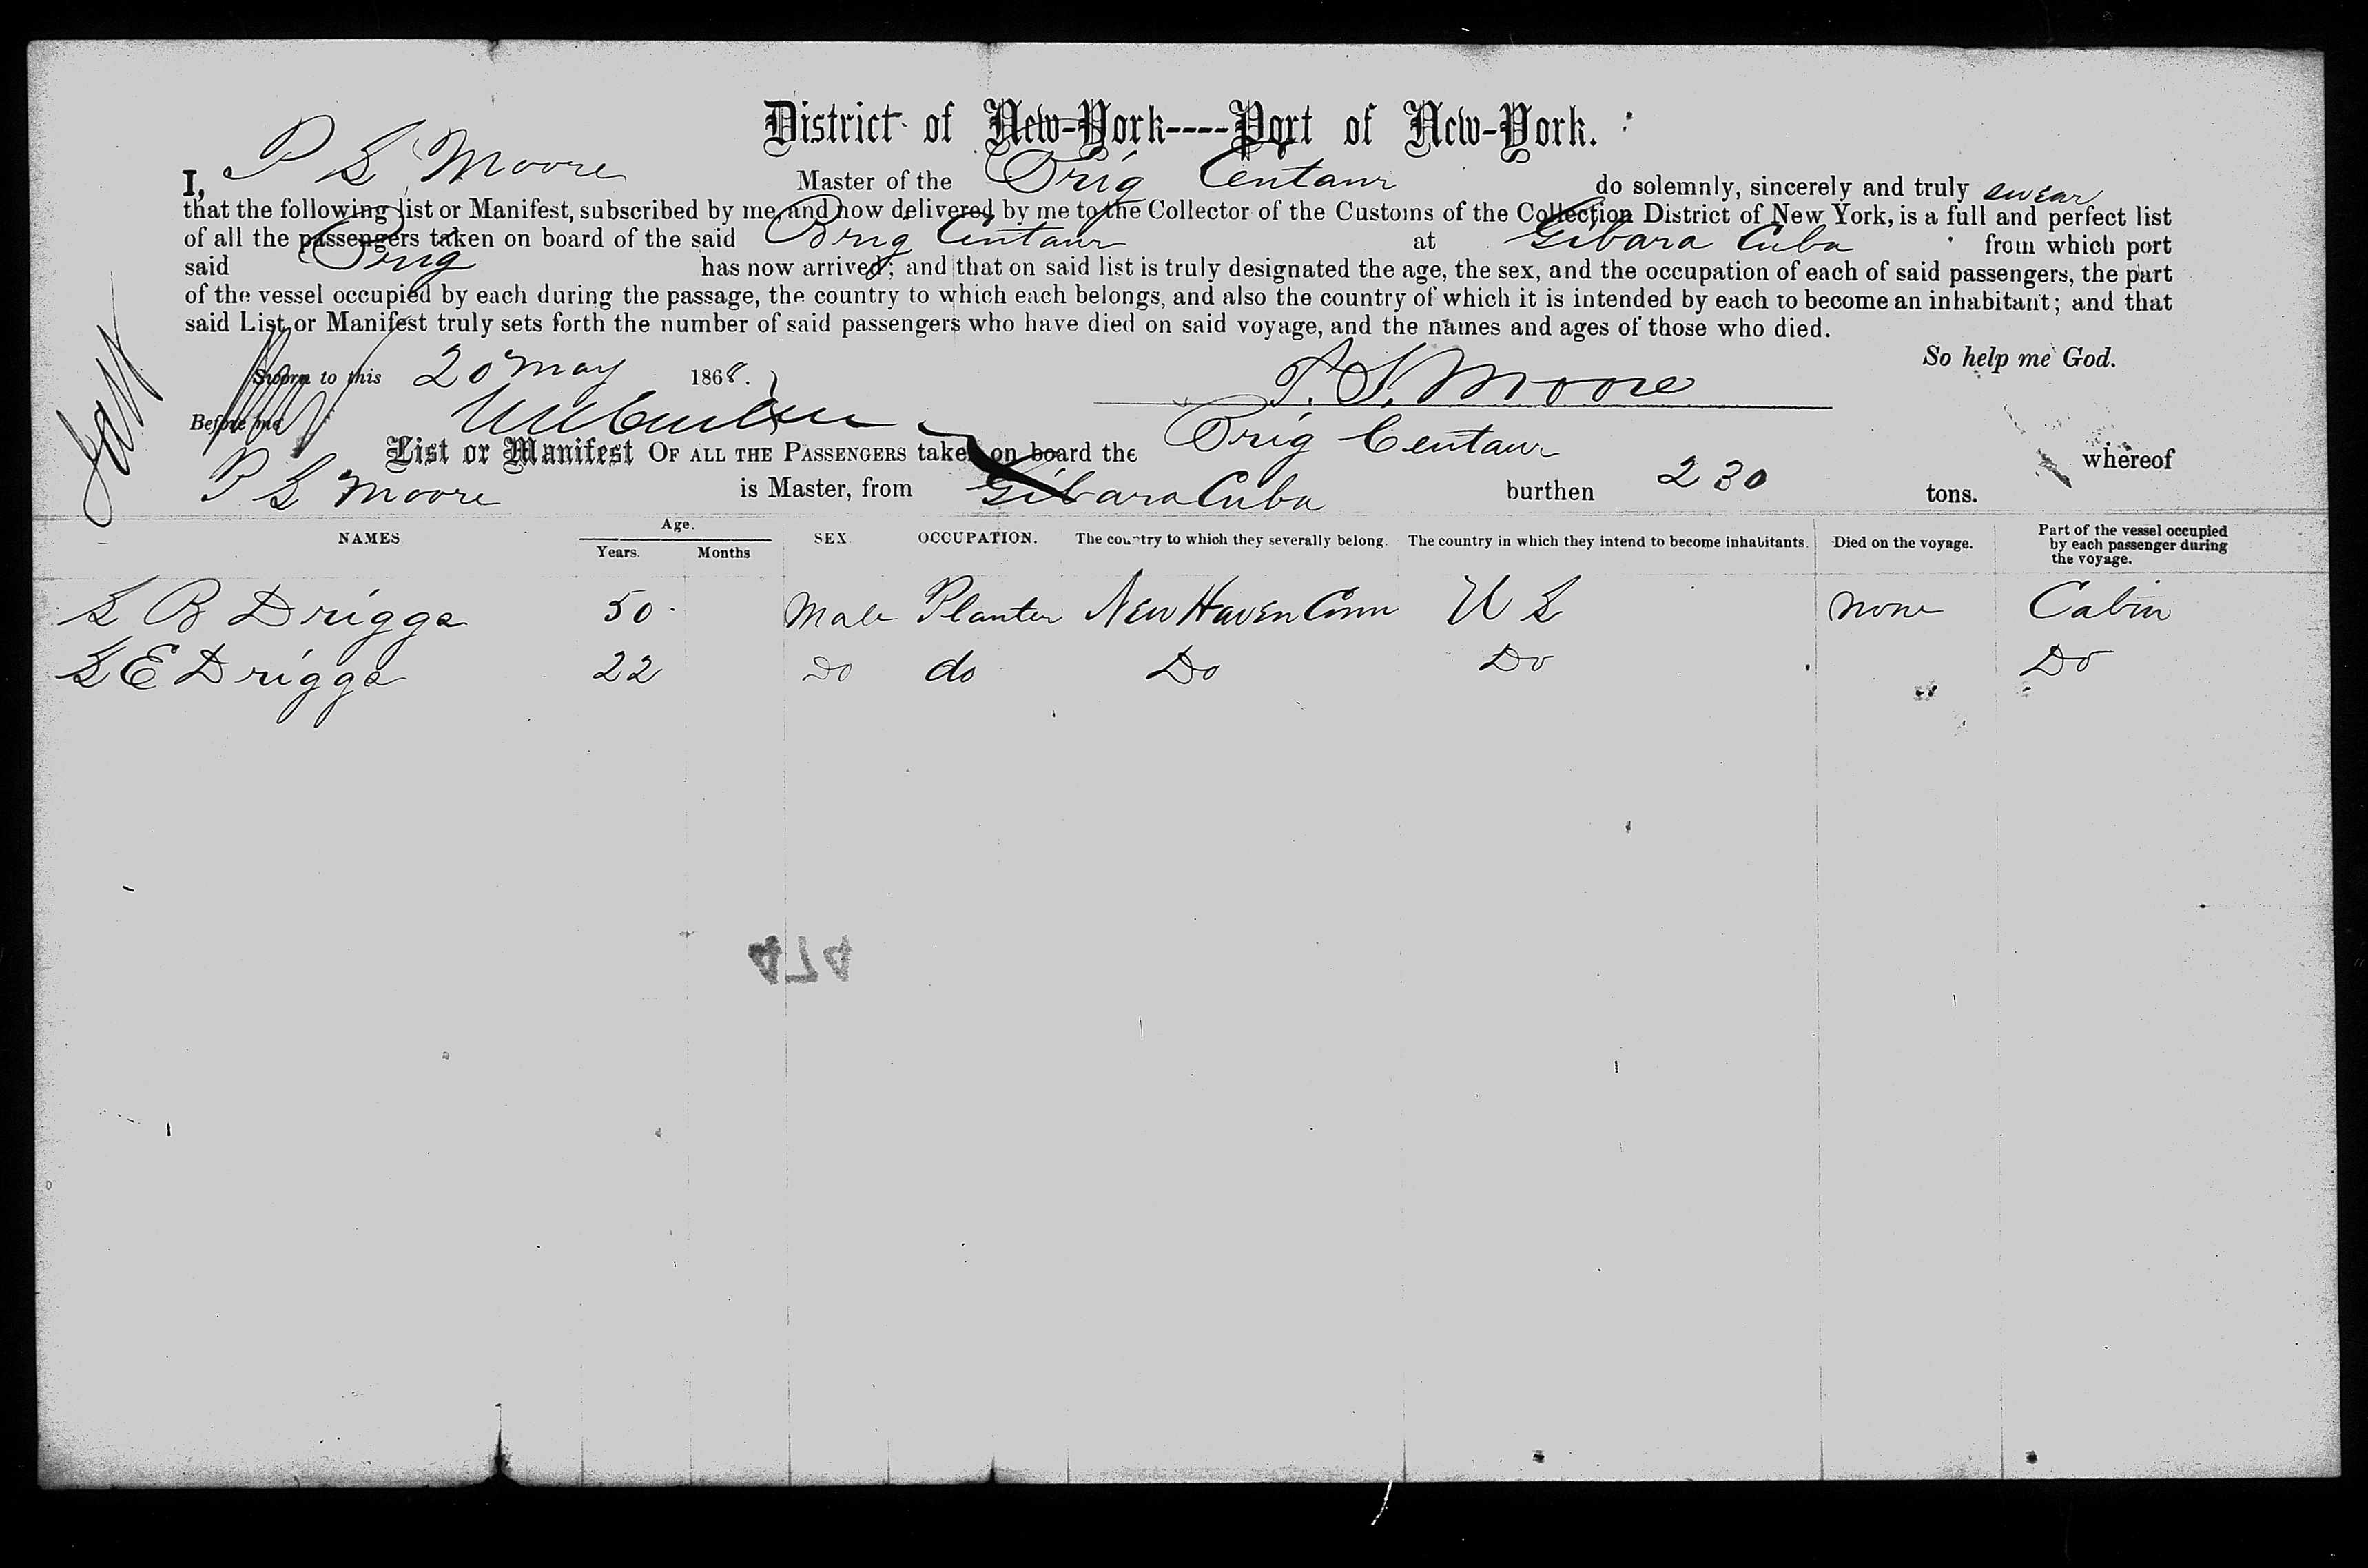 District of New-York----Port of New-York.
I, P S Moore Master of the Brig Centaur do solemnly, sincerely and truly swear
that the following list or Manifest, subscribed by me, and now delivered by me to the Collector of the Customs of the Collection District of New York, is a full and perfect list
of all the passengers taken on board of the said Brig Centaur at Gibara Cuba from which port
said Brig has now arrived; and that on said list is truly designated the age, the sex, and the occupation of each of said passengers, the part
of the vessel occupied by each during the passage, the country to which each belongs, and also the country of which it is intended by each to become an inhabitant; and that
said List or Manifest truly sets forth the number of said passengers who have died on said voyage, and the names and ages of those who died.
So help me God.
Sworn to this 20 May 1868.
P. S. Moore
Before me
List or Manifest OF ALL THE PASSENGERS taken on board the Brig Centaur whereof
P S Moore is Master, from Gibara Cuba burthen 230 tons.
NAMES Age. Years. Months SEX OCCUPATION. The country to which they severally belong. The country in which they intend to become inhabitants. Died on the voyage. Part of the vessel occupied by each passenger during the voyage.
S B Driggs 50 Male Planter New Haven Conn U S none Cabin
S E Driggs 22 Do do Do Do Do
474